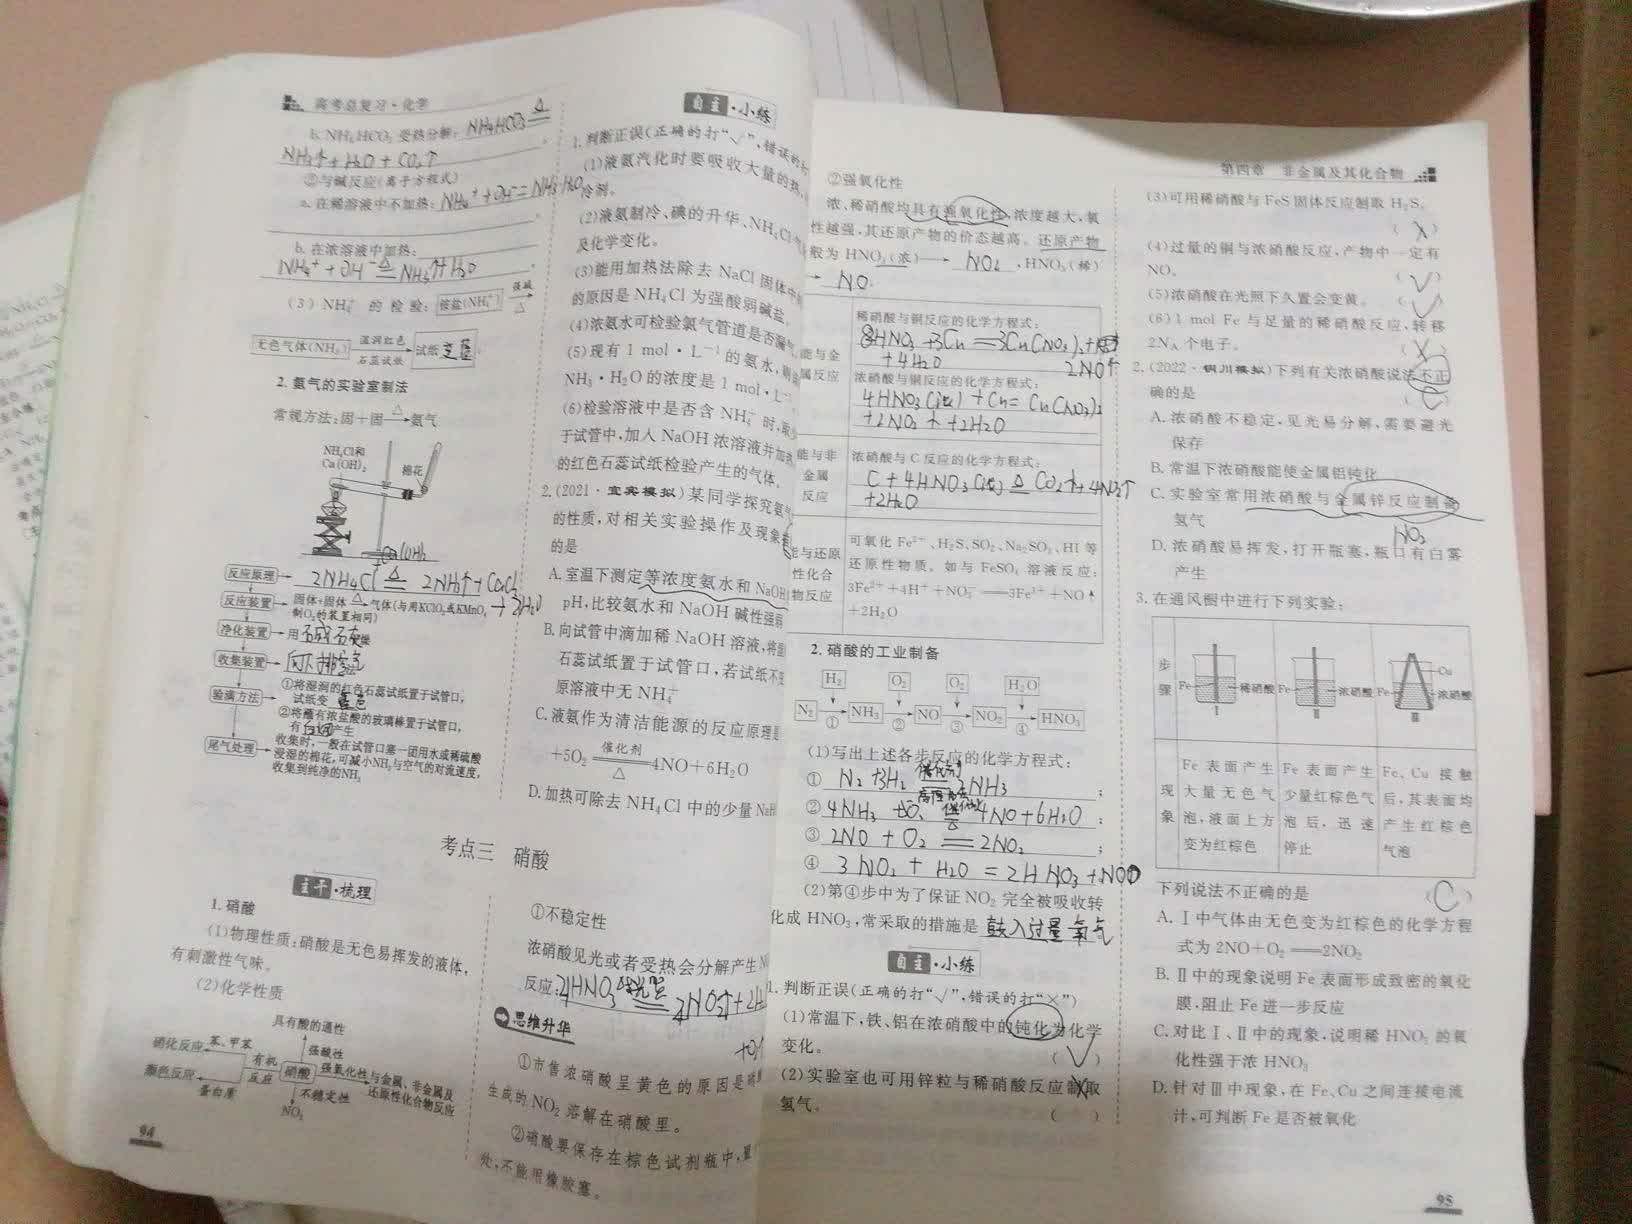 高考总复习·化学
b. NH₄HCO₃ 受热分解: NH₄HCO₃ ≜
NH₃↑ + H₂O + CO₂↑
②与碱反应(离子方程式)
a. 在稀溶液中不加热: NH₄⁺ + OH⁻ = NH₃·H₂O
b. 在浓溶液中加热:
NH₄⁺ + OH⁻ ≜ NH₃↑ H₂O
(3) NH₄⁺ 的检验: 铵盐(NH₄⁺) 强碱 △
无色气体(NH₃) 湿润红色 石蕊试纸 试纸变蓝
2. 氨气的实验室制法
常规方法:固+固 △ → 氨气
NH₄Cl和
Ca(OH)₂
棉花
反应原理 → 2NH₄Cl ≜ 2NH₃↑ + CaCl₂
+ 2H₂O
反应装置 → 固体+固体 △ → 气体(与用KClO₃或KMnO₄
制O₂的装置相同)
净化装置 → 用
收集装置 →
验满方法 → ①将湿润的红色石蕊试纸置于试管口,
试纸变 蓝色
②将蘸有浓盐酸的玻璃棒置于试管口,
有 白烟 产生
尾气处理 → 收集时,一般在试管口塞一团用水或稀硫酸
浸湿的棉花,可减小NH₃与空气的对流速度,
收集到纯净的NH₃
自主·小练
1. 判断正误(正确的打“√”,错误的打
(1)液氨汽化时要吸收大量的热,
冷剂。
(2)液氨制冷、碘的升华、NH₄Cl
及化学变化。
(3)能用加热法除去 NaCl 固体中
的原因是 NH₄Cl 为强酸弱碱盐。
(4)浓氨水可检验氯气管道是否漏气
(5)现有 1 mol·L⁻¹ 的氨水,
NH₃·H₂O 的浓度是 1 mol·L⁻
(6)检验溶液中是否含 NH₄⁺ 时,取
于试管中,加入 NaOH 浓溶液并加热
的红色石蕊试纸检验产生的气体。
2. (2021·宜宾模拟)某同学探究氨气
的性质,对相关实验操作及现象
的是
A. 室温下测定等浓度氨水和 NaOH
pH,比较氨水和 NaOH 碱性强弱
B. 向试管中滴加稀 NaOH 溶液,将
石蕊试纸置于试管口,若试纸不
原溶液中无 NH₄⁺
C. 液氨作为清洁能源的反应原理是
+5O₂ 催化剂 △ 4NO+6H₂O
D. 加热可除去 NH₄Cl 中的少量
考点三 硝酸
主干·梳理
1. 硝酸
(1)物理性质:硝酸是无色易挥发的液体,
有刺激性气味。
(2)化学性质
具有酸的通性
强酸性
硝化反应 苯、甲苯
颜色反应 蛋白质
有机 反应
硝酸
强氧化性 与金属、非金属及
还原性化合物反应
不稳定性
NO₂
94
①不稳定性
浓硝酸见光或者受热会分解产生
反应: 4HNO₃
思维升华
①市售浓硝酸呈黄色的原因是
生成的 NO₂ 溶解在硝酸里。
②硝酸要保存在棕色试剂瓶中,
处,不能用橡胶塞。
第四章 非金属及其化合物
②强氧化性
浓、稀硝酸均具有强氧化性,浓度越大,氧
性越强,其还原产物的价态越高。还原产物
般为 HNO₃(浓) → NO₂ ,HNO₃(稀)
→ NO.
能与金
属反应
稀硝酸与铜反应的化学方程式:
8HNO₃ + 3Cu = 3Cu(NO₃)₂ +
+4H₂O 2NO↑
浓硝酸与铜反应的化学方程式:
4HNO₃(浓) + Cu = Cu(NO₃)₂
+2NO₂ ↑ +2H₂O
能与非
金属
反应
浓硝酸与 C 反应的化学方程式:
C + 4HNO₃(浓) ≜ CO₂↑ + 4NO₂↑
+2H₂O
能与还原
性化合
物反应
可氧化 Fe²⁺、H₂S、SO₂、Na₂SO₃、HI 等
还原性物质。如与 FeSO₄ 溶液反应:
3Fe²⁺+4H⁺+NO₃⁻══3Fe³⁺+NO↑
+2H₂O
2. 硝酸的工业制备
H₂ O₂ O₂ H₂O
N₂ ① NH₃ ② NO ③ NO₂ ④ HNO₃
(1)写出上述各步反应的化学方程式:
① N₂ + 3H₂ 2NH₃ ;
② 4NH₃ + 5O₂ 4NO + 6H₂O ;
③ 2NO + O₂ = 2NO₂ ;
④ 3NO₂ + H₂O = 2HNO₃ + NO
(2)第④步中为了保证 NO₂ 完全被吸收转
化成 HNO₃,常采取的措施是 鼓入过量氧气
自主·小练
1. 判断正误(正确的打“√”,错误的打“×”)
(1)常温下,铁、铝在浓硝酸中的钝化为化学
变化。 (√)
(2)实验室也可用锌粒与稀硝酸反应制取
氢气。 ( )
(3)可用稀硝酸与 FeS 固体反应制取 H₂S。
(X)
(4)过量的铜与浓硝酸反应,产物中一定有
NO。 (√)
(5)浓硝酸在光照下久置会变黄。 (√)
(6)1 mol Fe 与足量的稀硝酸反应,转移
2N_A 个电子。 (X)
2. (2022·铜川模拟)下列有关浓硝酸说法不正
确的是 (C)
A. 浓硝酸不稳定,见光易分解,需要避光
保存
B. 常温下浓硝酸能使金属铝钝化
C. 实验室常用浓硝酸与金属锌反应制备
氢气 NO₂
D. 浓硝酸易挥发,打开瓶塞,瓶口有白雾
产生
3. 在通风橱中进行下列实验:
步骤
Fe 稀硝酸 Ⅰ
Fe 浓硝酸 Ⅱ
Fe Cu 浓硝酸 Ⅲ
现象
Fe 表面产生
大量无色气
泡,液面上方
变为红棕色
Fe 表面产生
少量红棕色气
泡后,迅速
停止
Fe、Cu 接触
后,其表面均
产生红棕色
气泡
下列说法不正确的是 (C)
A. Ⅰ中气体由无色变为红棕色的化学方程
式为 2NO+O₂══2NO₂
B. Ⅱ中的现象说明 Fe 表面形成致密的氧化
膜,阻止 Fe 进一步反应
C. 对比Ⅰ、Ⅱ中的现象,说明稀 HNO₃ 的氧
化性强于浓 HNO₃
D. 针对Ⅲ中现象,在 Fe、Cu 之间连接电流
计,可判断 Fe 是否被氧化
95